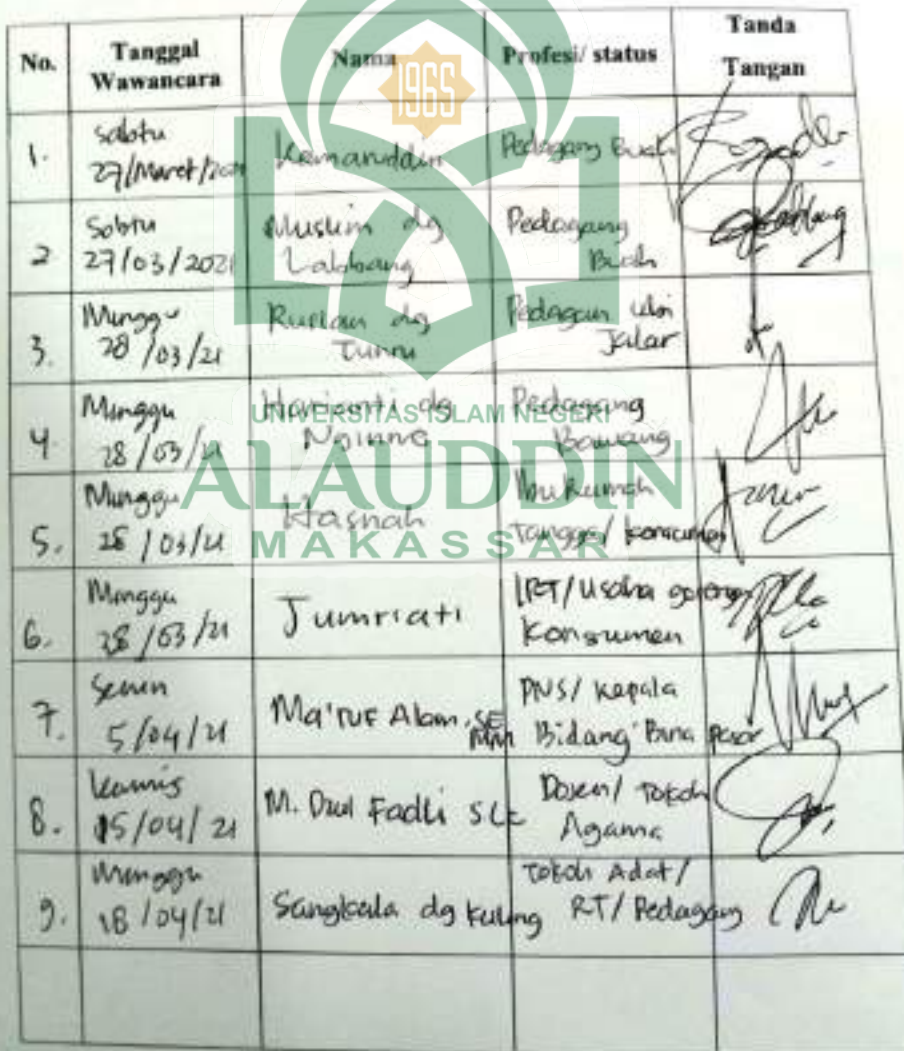 No. Tanggal Wawancara Nama Profesi/ status Tanda Tangan
1965
1. Sabtu 27/Maret/2021 Kamaruddin Pedagang Buah
2 Sabtu 27/03/2021 Muslim dg Labbang Pedagang Buah
3. Minggu 28/03/21 Ruslan dg Tunru Pedagan ubi Jalar
4. Minggu 28/03/21 Harianti dg Nginne Pedagang Bawang
UNIVERSITAS ISLAM NEGERI
ALAUDDIN
MAKASSAR
5. Minggu 28/03/21 Hasnah Ibu Rumah Tangga/ konsumen
6. Minggu 28/03/21 Jumriati IRT/Usaha gorengan Konsumen
7. Senin 5/04/21 Ma'ruf Alam, SE MM PNS/ Kepala Bidang Bina Pasar
8. Kamis 15/04/21 M. Dzul Fadli Dosen/ Tokoh Agama
9. Minggu 18/04/21 Sangkala dg kulling Tokoh Adat/ RT/ Pedagang